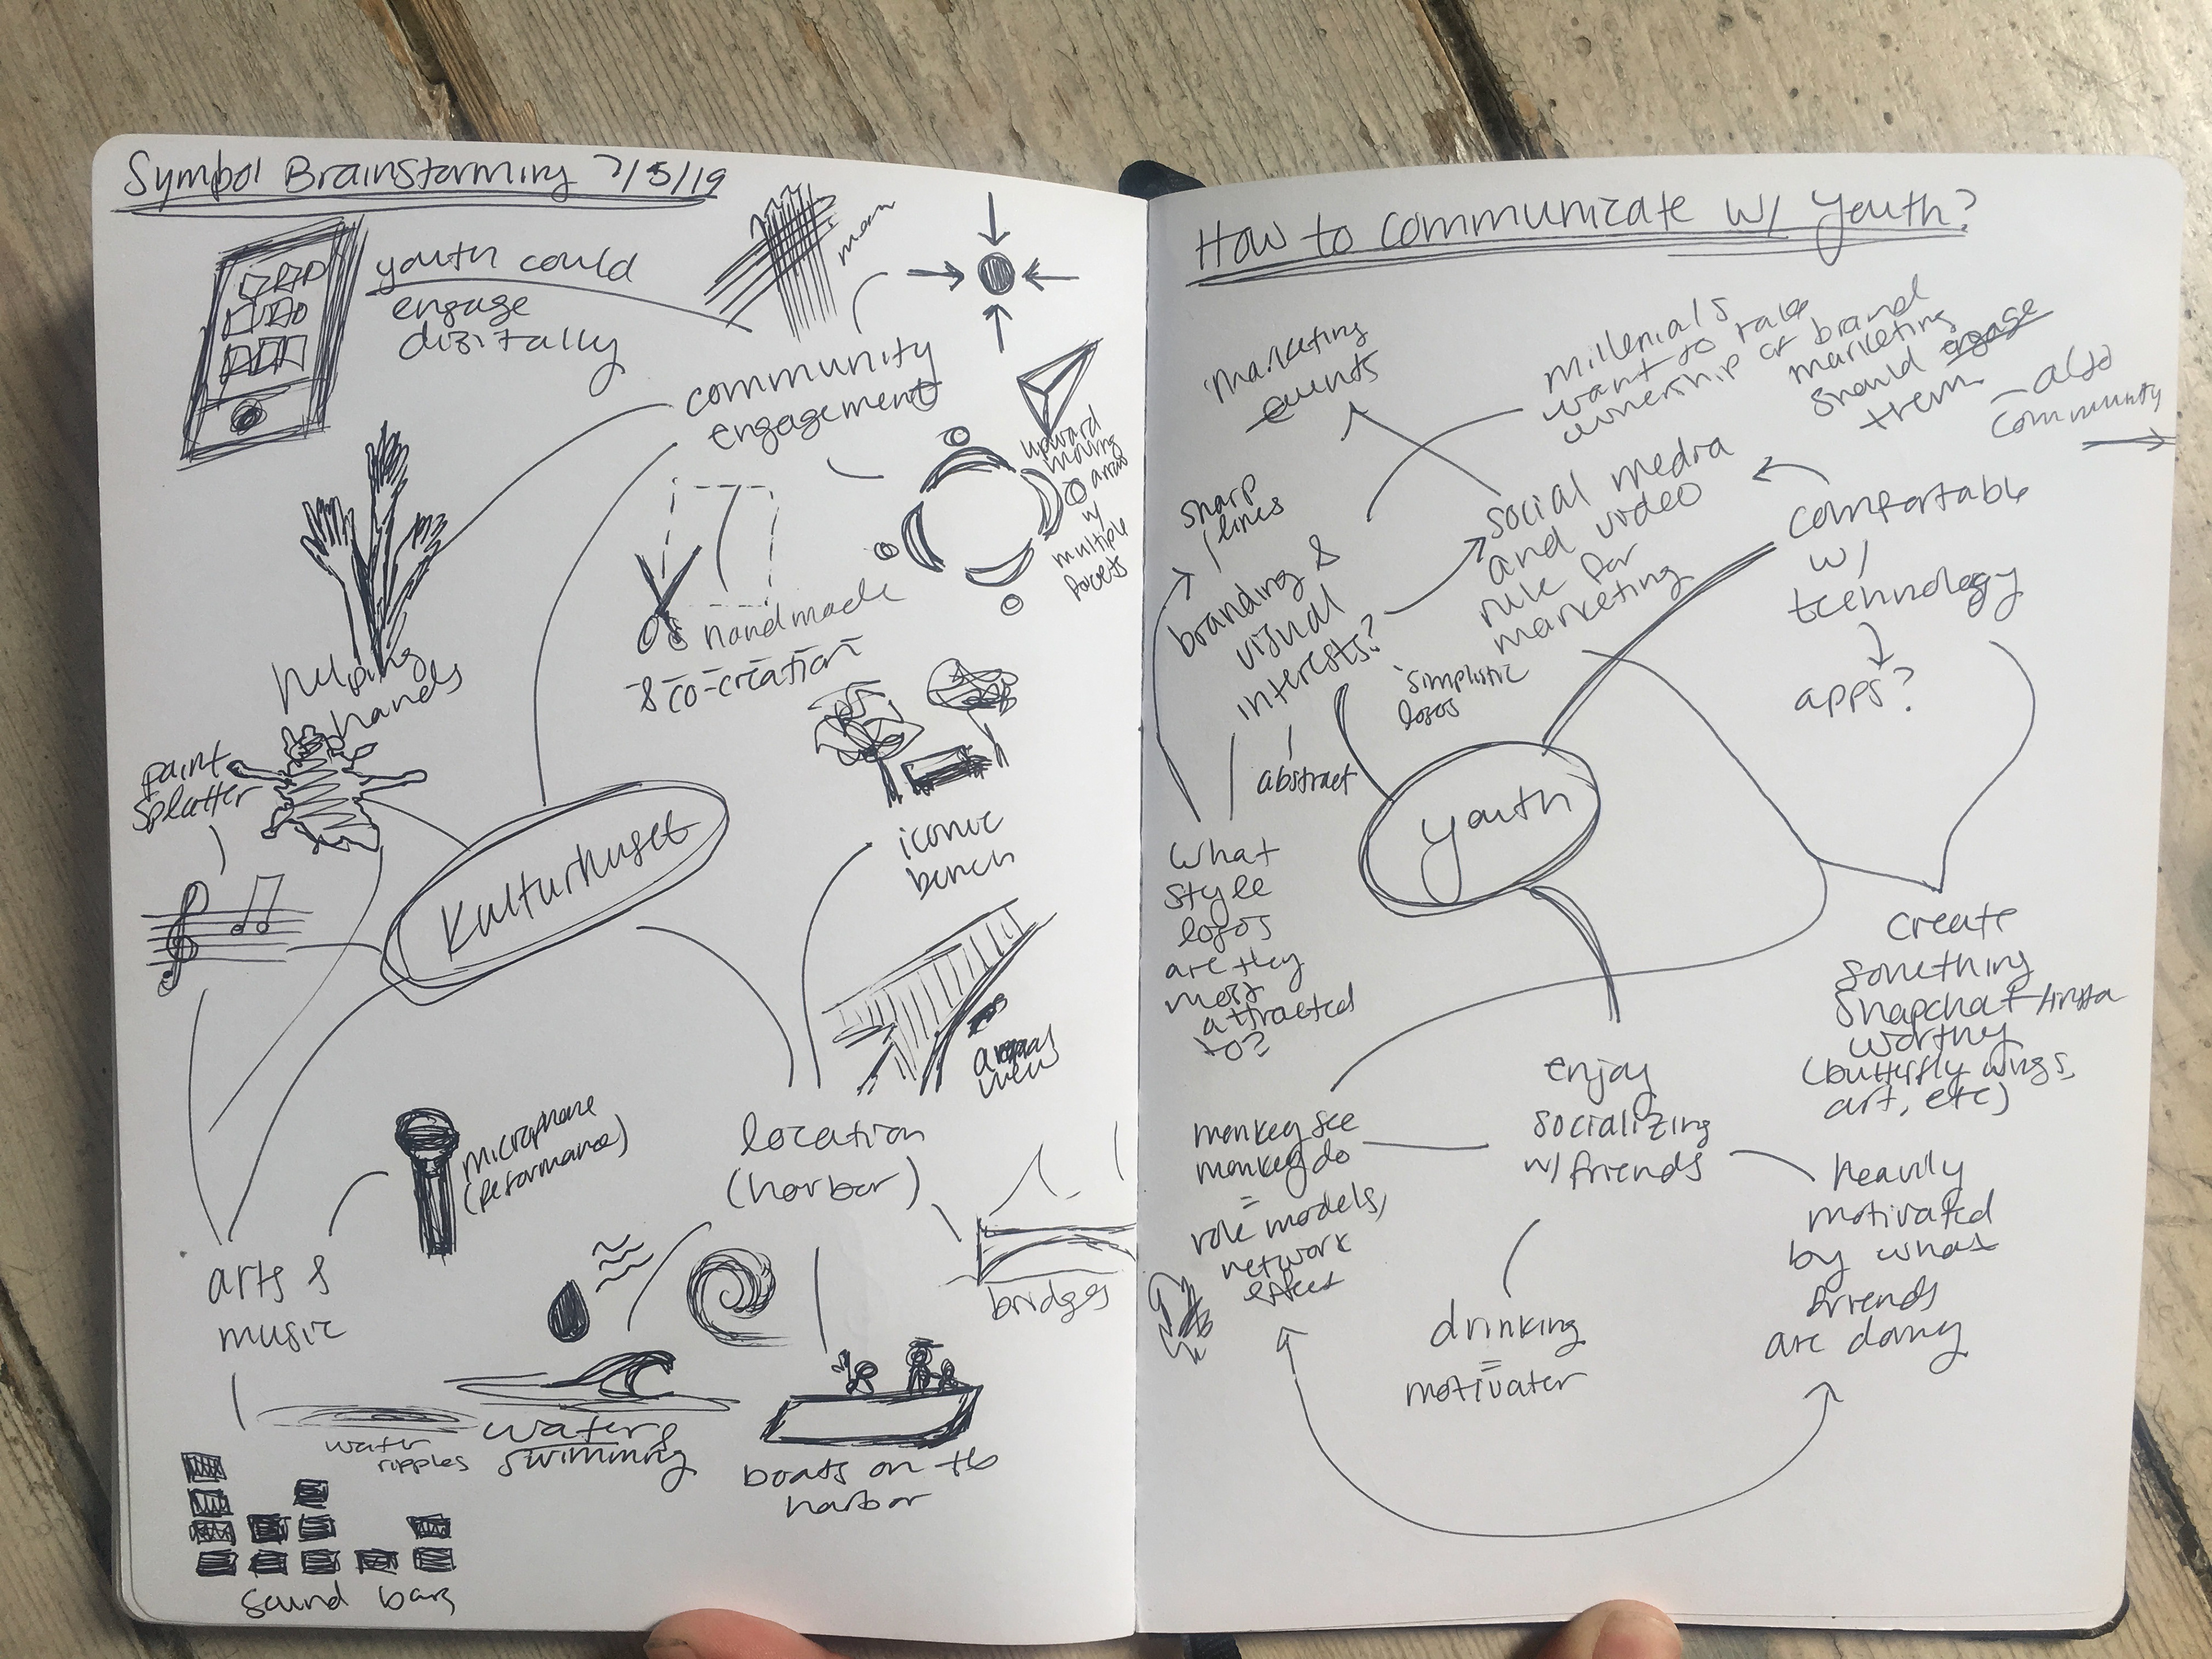 Symbol Brainstorming 7/5/19
youth could
engage
digitally
community
engagement
upward
moving
arrow
w/
multiple
facets
handmade
& co-creation
helping
hands
paint
splatter
Kulturhuset
iconic
bench
view
location
(harbor)
microphone
(performance)
arts &
music
bridges
water
ripples
water &
swimming
boats on the
harbor
sound bars
How to communicate w/ Youth?
marketing
events
millenials
want to take
ownership of brand
marketing
should engage
them
- also
community
sharp
lines
social media
and video
rule for
marketing
comfortable
w/
technology
apps?
branding &
visual
interests?
simplistic
logos
abstract
youth
what
style
logos
are they
most
attracted
to?
create
something
Snapchat/insta
worthy
(butterfly wings,
art, etc)
enjoy
socializing
w/ friends
monkey see
monkey do
=
role models,
network
effect
heavily
motivated
by what
friends
are doing
drinking
=
motivater